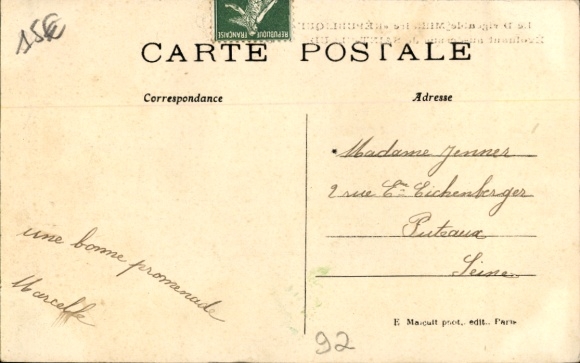 15€
RÉPUBLIQUE FRANÇAISE
CARTE POSTALE
Correspondance
Adresse
Madame Jenner
2 rue Ene Eichenberger
Puteaux
Seine
une bonne promenade
Marcelle
E. Malcuit phot., edit., Paris
92